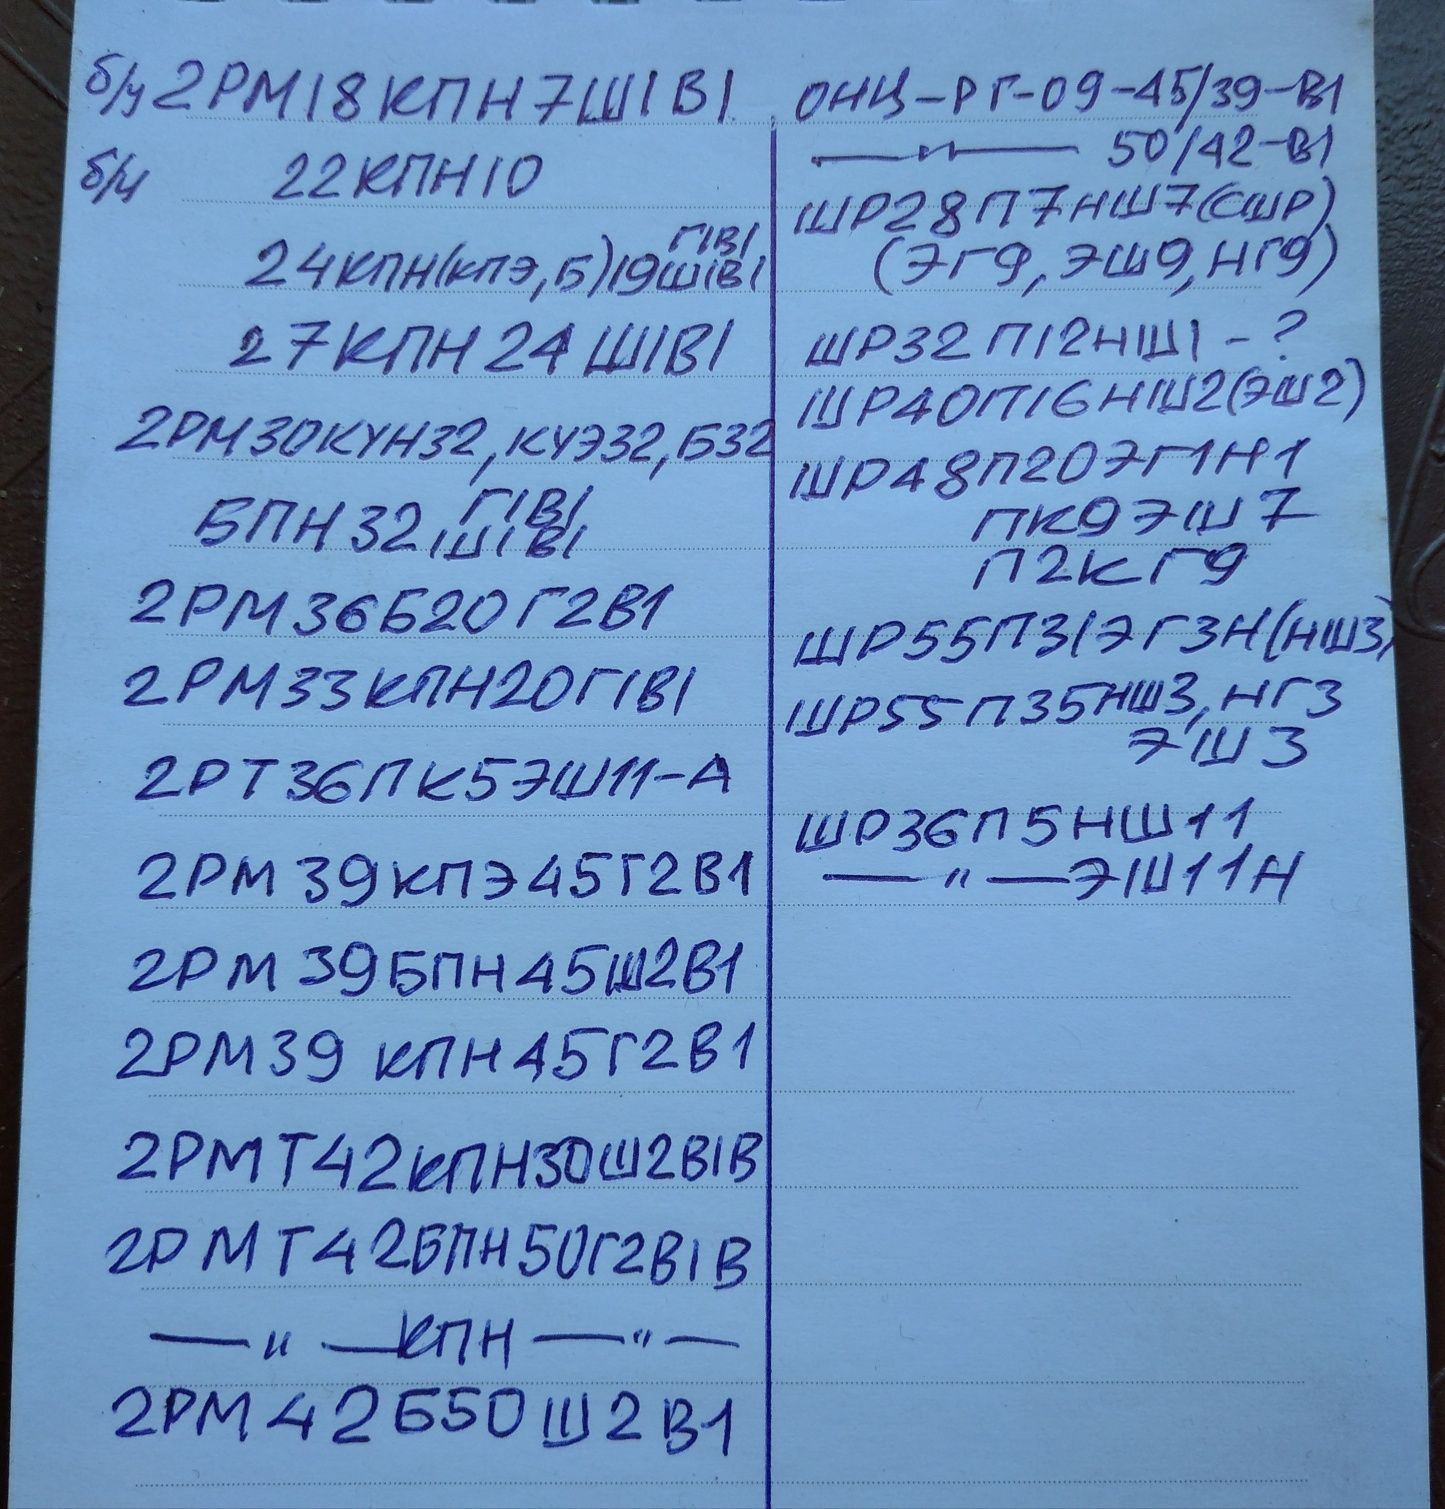 б/у 2РМ18КПН7Ш1В1
б/у 22КПН10
Г1В1
24КПН(КПЭ,Б)19Ш1В1
27КПН24Ш1В1
2РМ30КУН32,КУЭ32,Б32
Г1В1
БПН32,Ш1В1
2РМ36Б20Г2В1
2РМ33КПН20Г1В1
2РТ36ПК5ЭШ11-А
2РМ39КПЭ45Г2В1
2РМ39БПН45Ш2В1
2РМ39 КПН45Г2В1
2РМТ42КПН30Ш2В1В
2РМТ42БПН50Г2В1В
—"—КПН—"—
2РМ42Б50Ш2В1
ОНЦ-РГ-09-45/39-В1
—"— 50/42-В1
ШР28П7НШ7(СШР)
(ЭГ9,ЭШ9,НГ9)
ШР32П12НШ1-?
ШР40П16НШ2(ЭШ2)
ШР48П20ЭГ1Н1
ПК9ЭШ7
П2КГ9
ШР55П31ЭГ3Н(НШ3)
ШР55П35НШ3,НГ3
ЭШ3
ШР36П5НШ11
—"—ЭШ11Н